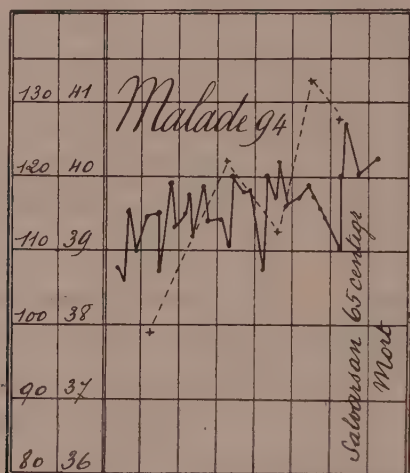 130 41
Malade 94
120 40
110 39
100 38
90 37
80 36
Salvarsan 65 centigr
Mort